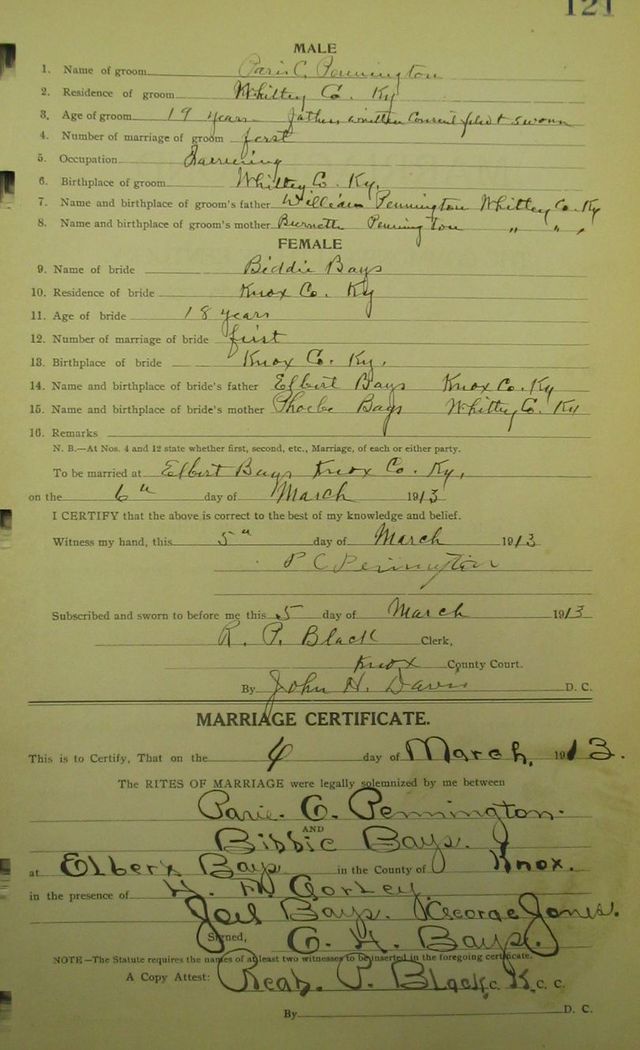 121
MALE
1. Name of groom Paris C. Pennington
2. Residence of groom Whitley Co. Ky
3. Age of groom 19 years Fathers written consent filed & sworn
4. Number of marriage of groom first
5. Occupation Farming
6. Birthplace of groom Whitley Co. Ky,
7. Name and birthplace of groom's father William Pennington Whitley Co. Ky
8. Name and birthplace of groom's mother Pennington " " ,
FEMALE
9. Name of bride Biddie Bays
10. Residence of bride Knox Co. Ky
11. Age of bride 18 years
12. Number of marriage of bride first
13. Birthplace of bride Knox Co. Ky,
14. Name and birthplace of bride's father Elbert Bays Knox Co. Ky
15. Name and birthplace of bride's mother Phoebe Bays Whitley Co. Ky
16. Remarks
N. B.—At Nos. 4 and 12 state whether first, second, etc., Marriage, of each or either party.
To be married at Elbert Bays Knox Co. Ky,
on the 6th day of March 1913
I CERTIFY that the above is correct to the best of my knowledge and belief.
Witness my hand, this 5th day of March 1913
P C Pennington
Subscribed and sworn to before me this 5 day of March 1913
R. P. Black Clerk,
Knox County Court.
By John H. Davis D. C.
MARRIAGE CERTIFICATE.
This is to Certify, That on the day of March, 1913.
The RITES OF MARRIAGE were legally solemnized by me between
Parie. C. Pennington.
AND
Bibbie Bays.
at Elbert Bays in the County of Knox.
in the presence of
Joel Bays. George Jones.
Signed, G. H. Bays.
NOTE—The Statute requires the names of at least two witnesses to be inserted in the foregoing certificate.
A Copy Attest: Read. P. Black C. K. C. C.
By D. C.